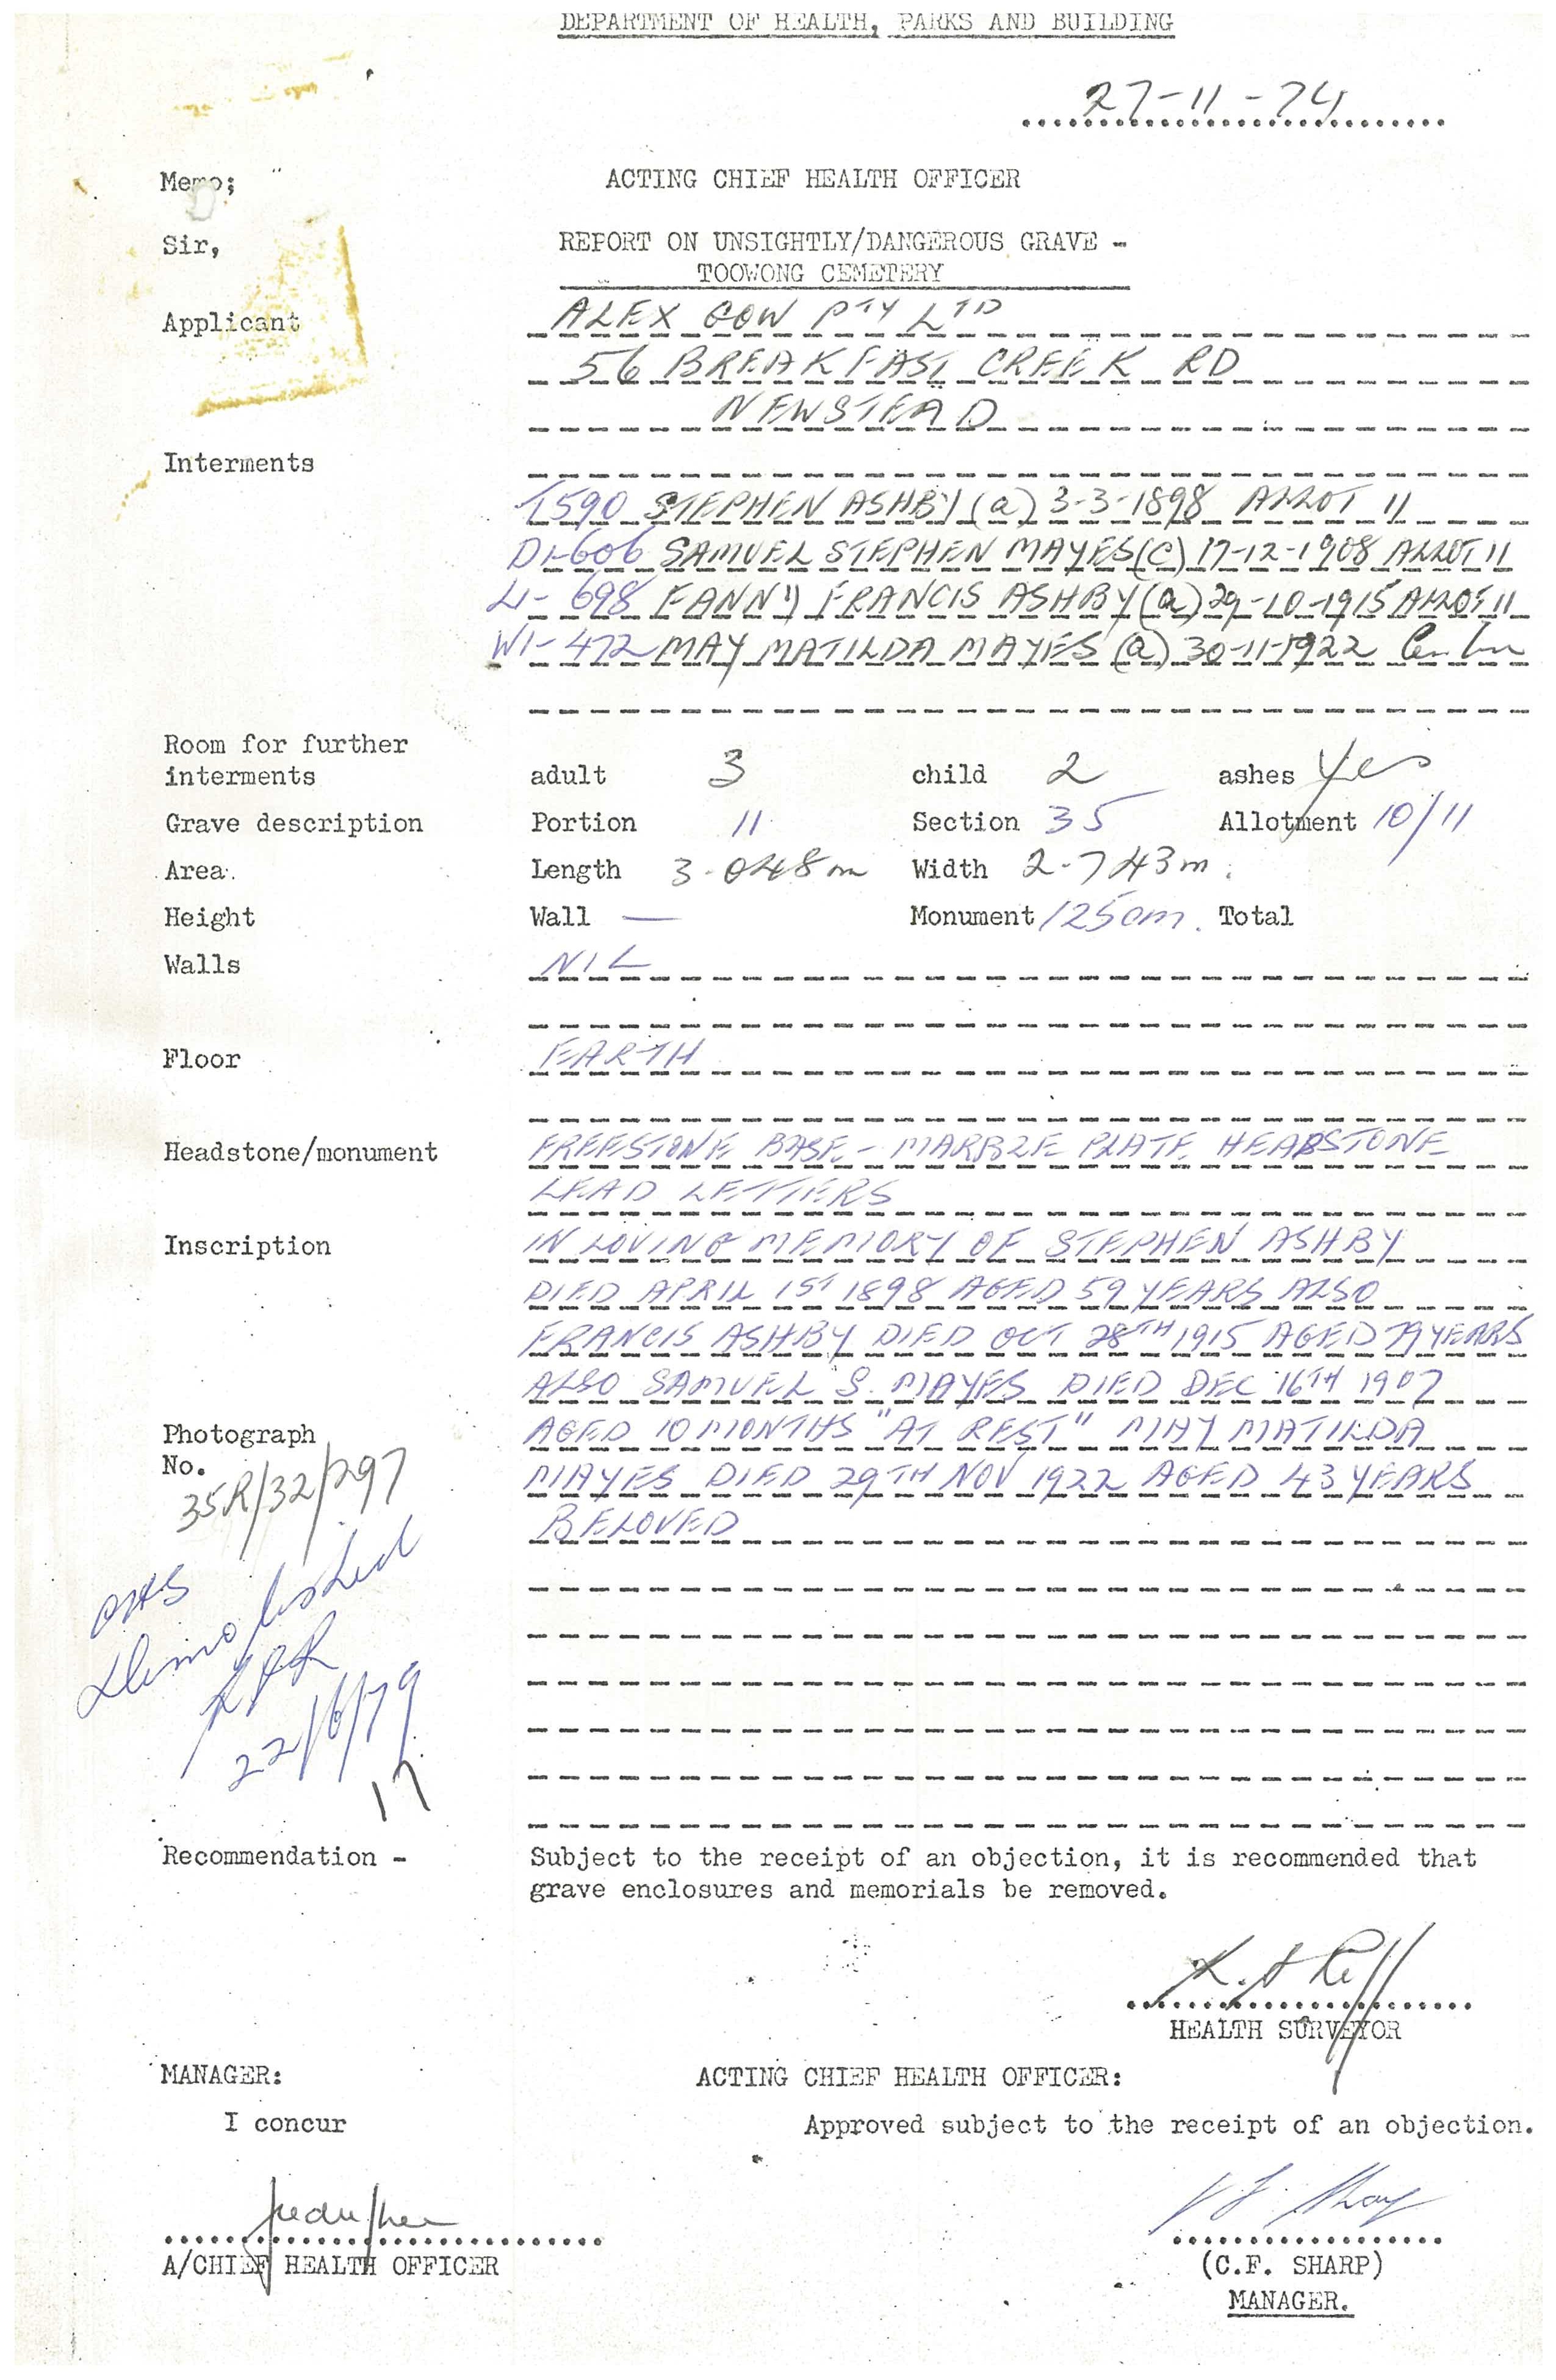 DEPARTMENT OF HEALTH, PARKS AND BUILDING
27-11-74
Memo; ACTING CHIEF HEALTH OFFICER
Sir, REPORT ON UNSIGHTLY/DANGEROUS GRAVE -
TOOWONG CEMETERY
Applicant ALEX GOW PTY LTD
56 BREAKFAST CREEK RD
NEWSTEAD
Interments
1590 STEPHEN ASHBY (a) 3-3-1898 ALLOT 11
D1-606 SAMUEL STEPHEN MAYES (c) 17-12-1908 ALLOT 11
L1-698 FANNY FRANCIS ASHBY (a) 29-10-1915 ALLOT 11
W1-472 MAY MATILDA MAYES (a) 30-11-1922
Room for further
interments adult 3 child 2 ashes Yes
Grave description Portion 11 Section 35 Allotment 10/11
Area. Length 3.048m Width 2.743m.
Height Wall — Monument 125cm. Total
Walls NIL
Floor EARTH
Headstone/monument FREESTONE BASE - MARBLE PLATE HEADSTONE
LEAD LETTERS
Inscription IN LOVING MEMORY OF STEPHEN ASHBY
DIED APRIL 1ST 1898 AGED 59 YEARS ALSO
FRANCIS ASHBY DIED OCT 28TH 1915 AGED 79 YEARS
ALSO SAMUEL S. MAYES DIED DEC 16TH 1907
Photograph AGED 10 MONTHS "AT REST" MAY MATILDA
No. MAYES DIED 29TH NOV 1922 AGED 43 YEARS
35R/32/297
BELOVED
Demolished
22/6/79
17
Recommendation - Subject to the receipt of an objection, it is recommended that
grave enclosures and memorials be removed.
HEALTH SURVEYOR
MANAGER: ACTING CHIEF HEALTH OFFICER:
I concur Approved subject to the receipt of an objection.
A/CHIEF HEALTH OFFICER (C.F. SHARP)
MANAGER.